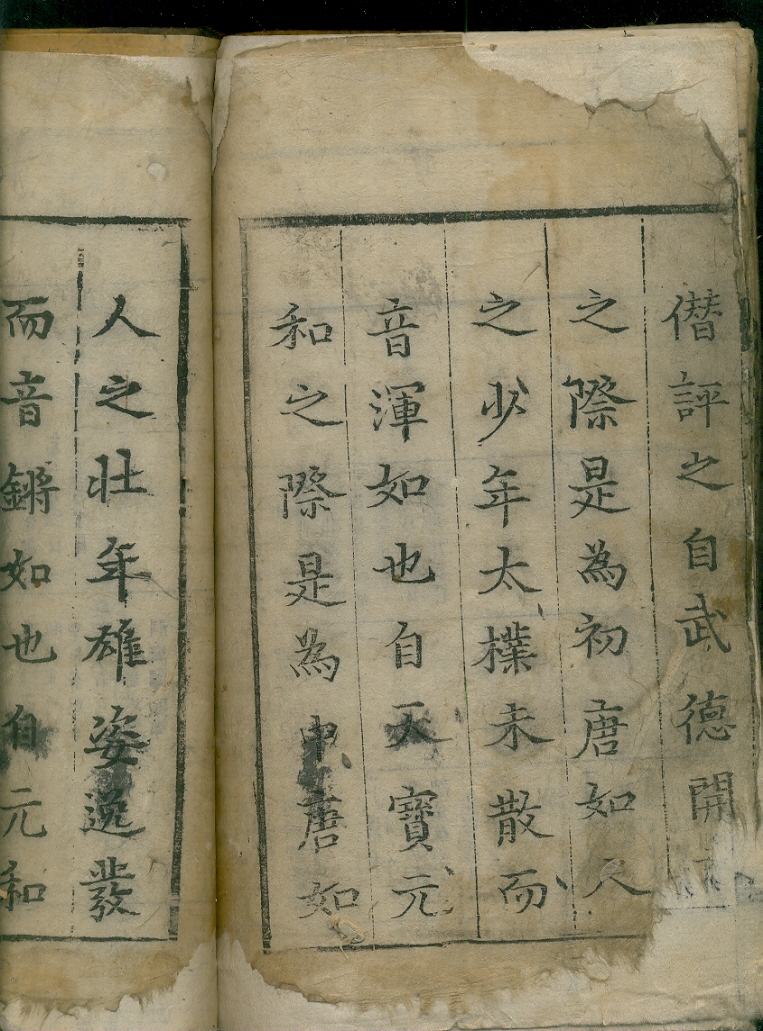 僭評之自武德開
之際是為初唐如人
之少年太樸未散而
音渾如也自天寶元
和之際是為中唐如
人之壯年雄姿逸發
而音鏘如也自元和